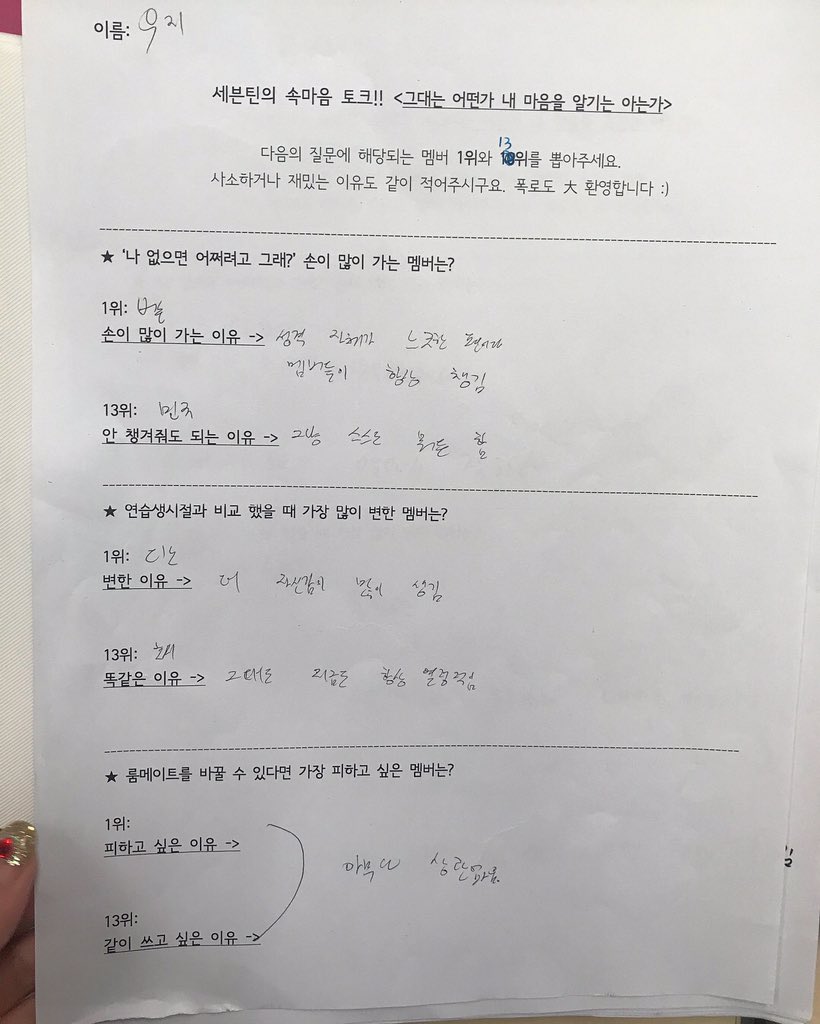 이름: 우지
세븐틴의 속마음 토크!! <그대는 어떤가 내 마음을 알기는 아는가>
다음의 질문에 해당되는 멤버 1위와 13위를 뽑아주세요.
사소하거나 재밌는 이유도 같이 적어주시구요. 폭로도 大 환영합니다 :)
★ '나 없으면 어쩌려고 그래?' 손이 많이 가는 멤버는?
1위: 버논
손이 많이 가는 이유 -> 성격 자체가 느긋한 편이라
멤버들이 항상 챙김
13위: 민규
안 챙겨줘도 되는 이유 -> 그냥 스스로 뭐든 함
★ 연습생시절과 비교 했을 때 가장 많이 변한 멤버는?
1위: 디노
변한 이유 -> 더 자신감이 많이 생김
13위: 호시
똑같은 이유 -> 그때도 지금도 항상 열정적임
★ 룸메이트를 바꿀 수 있다면 가장 피하고 싶은 멤버는?
1위:
피하고 싶은 이유 ->
아무나 상관없음.
13위:
같이 쓰고 싶은 이유 ->